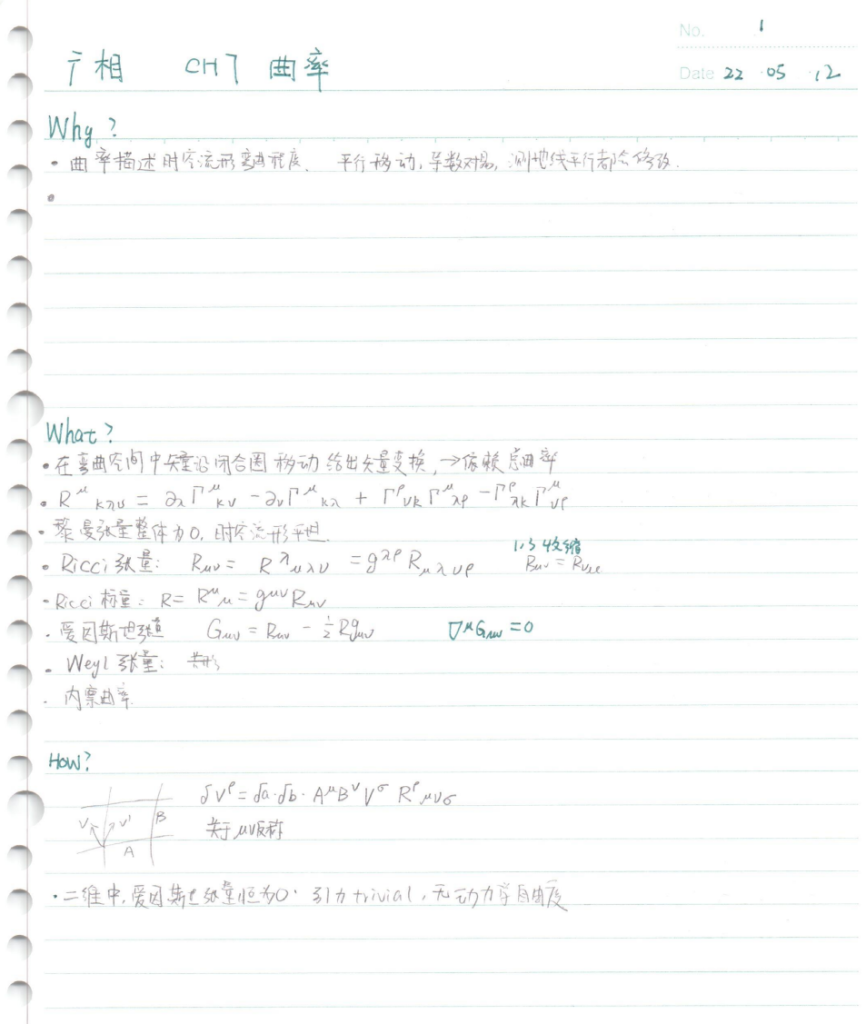 No. 1
广相 CH7 曲率
Date 22 ·05 ·12
Why?
• 曲率描述时空流形弯曲程度. 平行移动, 导数对易, 测地线平行都会修改.
•
What?
• 在弯曲空间中矢量沿闭合圈移动给出矢量变换, →依赖总曲率
• R^μ_{κλν} = ∂_λ Γ^μ_{κν} - ∂_ν Γ^μ_{κλ} + Γ^ρ_{νκ} Γ^μ_{λρ} - Γ^ρ_{λκ} Γ^μ_{νρ}
• 黎曼张量整体为0, 时空流形平坦.
1,3 收缩
• Ricci 张量: R_{μν} = R^λ_{μλν} = g^{λρ} R_{μλνρ}
• Ricci 标量: R = R^μ_μ = g^{μν} R_{μν}
• 爱因斯坦张量 G_{μν} = R_{μν} - ½ R g_{μν} ∇^μ G_{μν} = 0
• Weyl 张量: 共形
• 内禀曲率
How?
δV^ρ = δa·δb· A^μ B^ν V^σ R^ρ_{μνσ}
V V' B
关于μν反称
A
• 二维中, 爱因斯坦张量恒为0. 引力trivial, 无动力学自由度